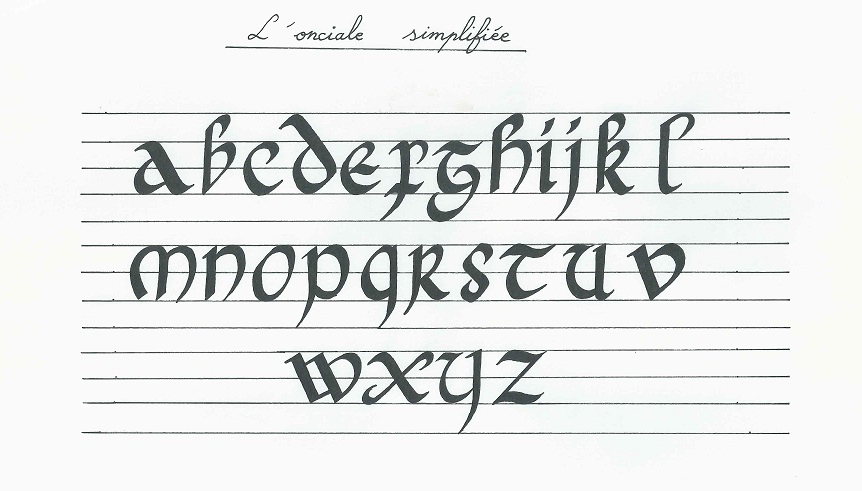 L'onciale simplifiée
abcdefghijkl
mnopqrstuv
wxyz